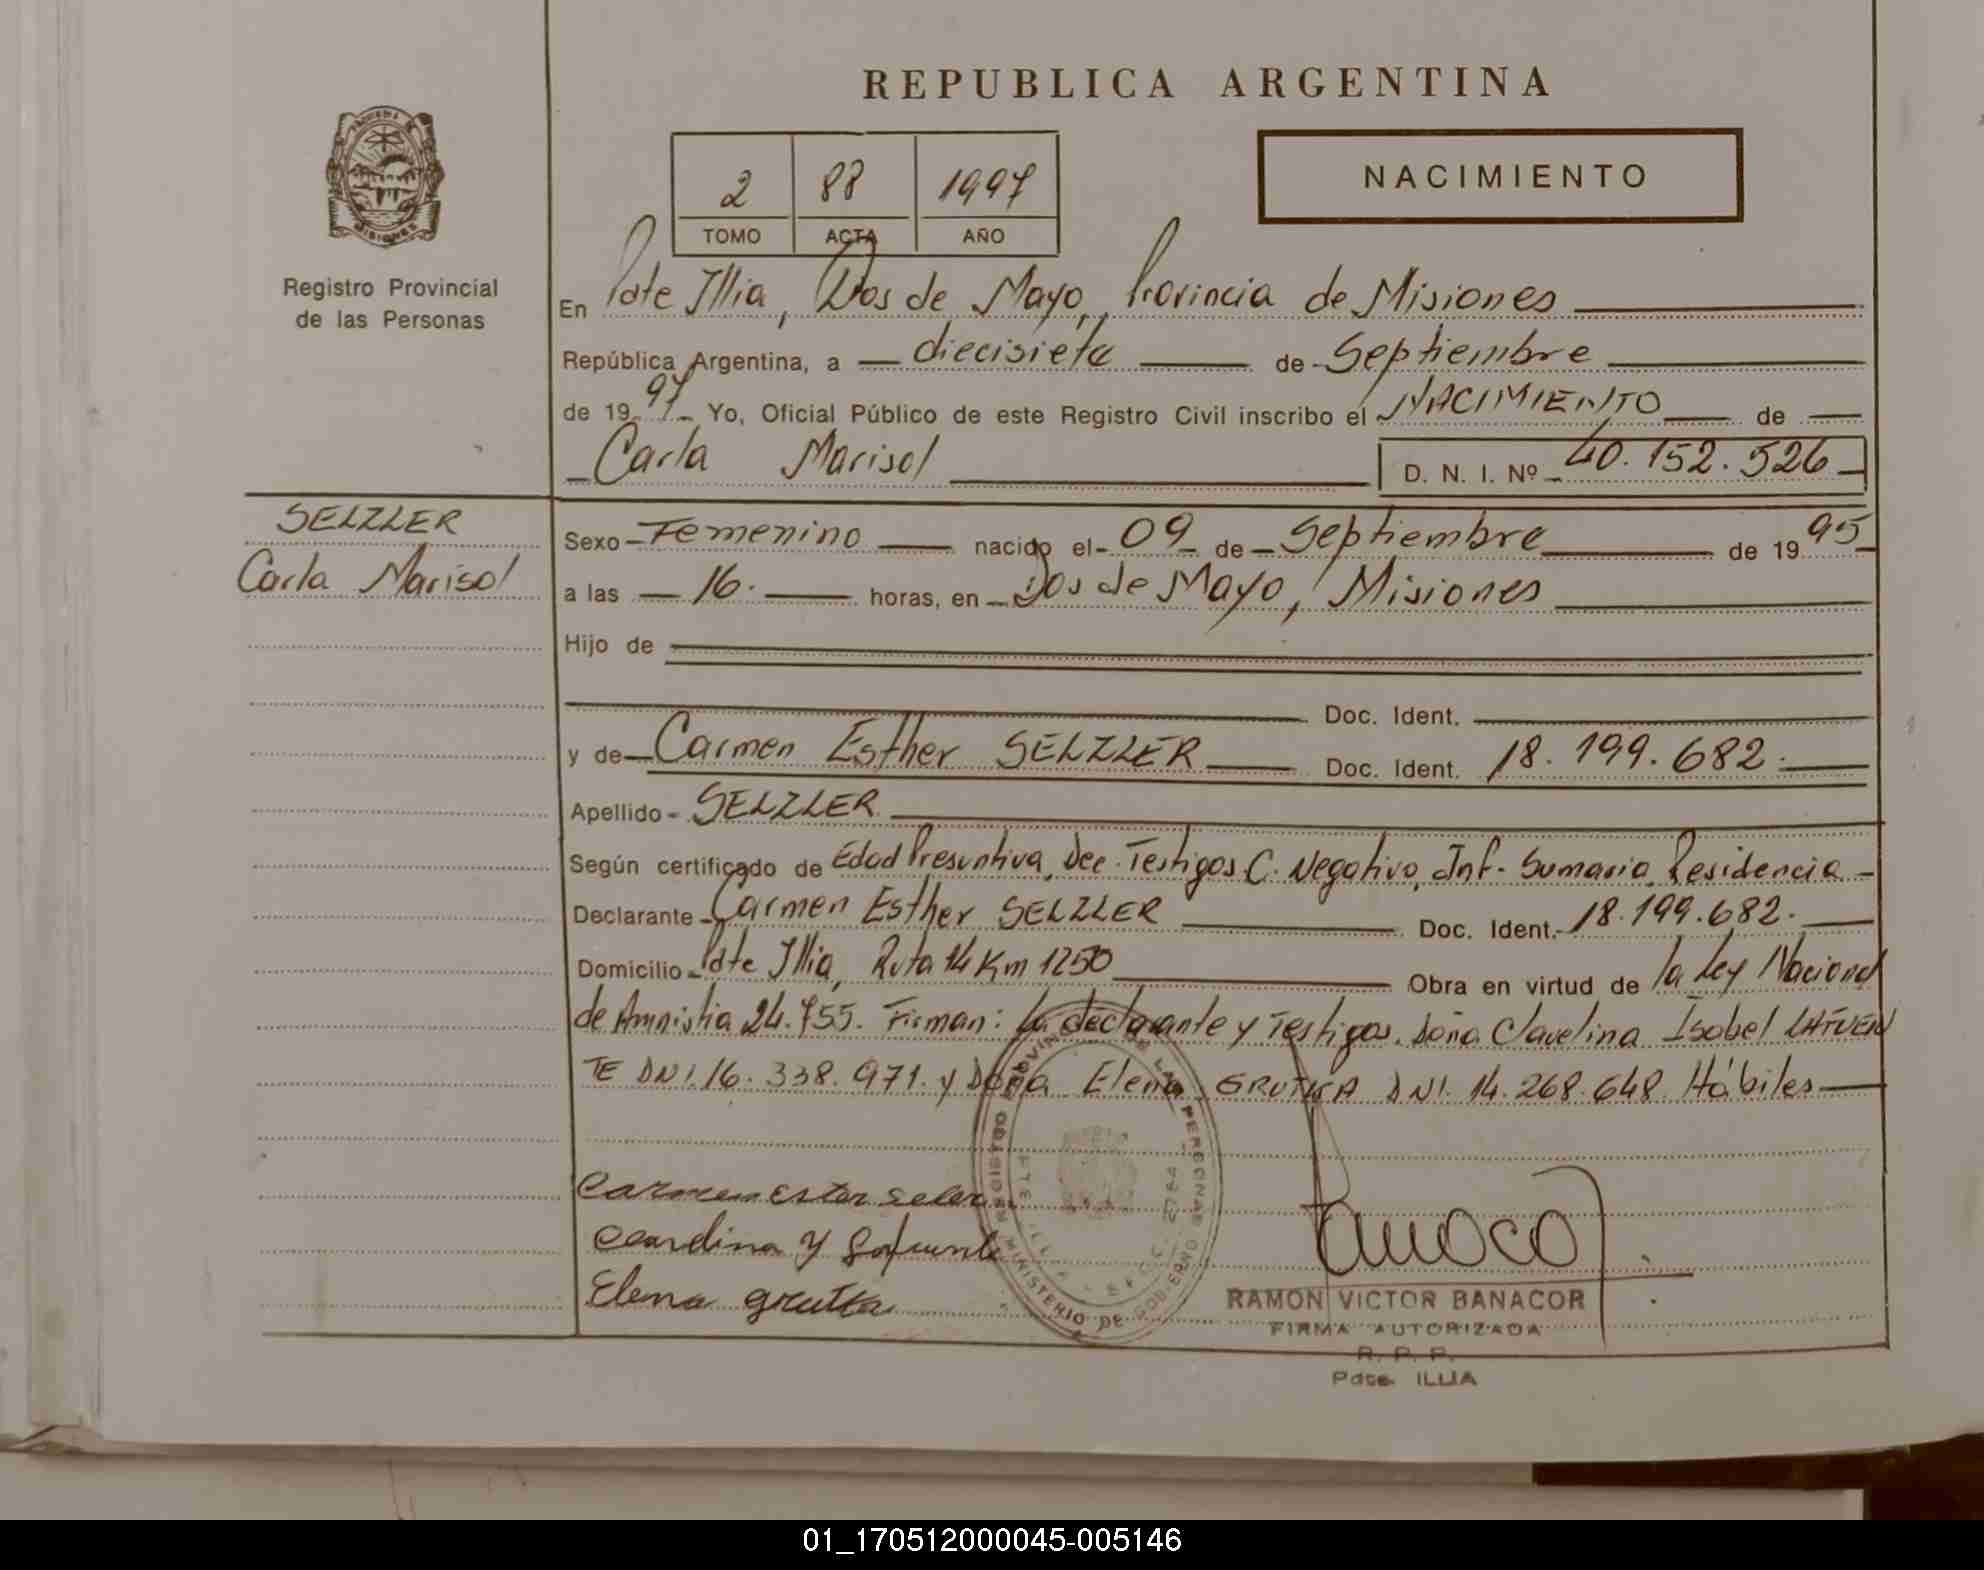 REPUBLICA ARGENTINA
NACIMIENTO
2 88 1997
TOMO ACTA AÑO
MISIONES
Registro Provincial
de las Personas
En Pdte Illia, Dos de Mayo, Provincia de Misiones
República Argentina, a diecisiete de Septiembre
de 1997 Yo, Oficial Público de este Registro Civil inscribo el NACIMIENTO de
Carla Marisol D. N. I. Nº 40.152.526
SELZLER
Carla Marisol
Sexo Femenino nacido el 09 de Septiembre de 1995
a las 16. horas, en Dos de Mayo, Misiones
Hijo de
Doc. Ident.
y de Carmen Esther SELZLER Doc. Ident. 18.199.682.
Apellido SELZLER
Según certificado de Edad Presuntiva, Dec. Testigos C. Negativo, Inf. Sumaria, Residencia
Declarante Carmen Esther SELZLER Doc. Ident. 18.199.682.
Domicilio Pdte Illia, Ruta 14 Km 1250 Obra en virtud de la Ley Nacional
de Amnistia 24.755. Firman: la declarante y Testigos. Doña Clavelina Isobel LAFUEN
TE DNI. 16.338.971. y Doña Elena GRUTKA DNI. 14.268.648. Hábiles
REGISTRO PROVINCIAL DE LAS PERSONAS
MINISTERIO DE GOBIERNO
Elena grutka
RAMON VICTOR BANACOR
FIRMA AUTORIZADA
R. P. P.
Pdte. ILLIA
01_170512000045-005146